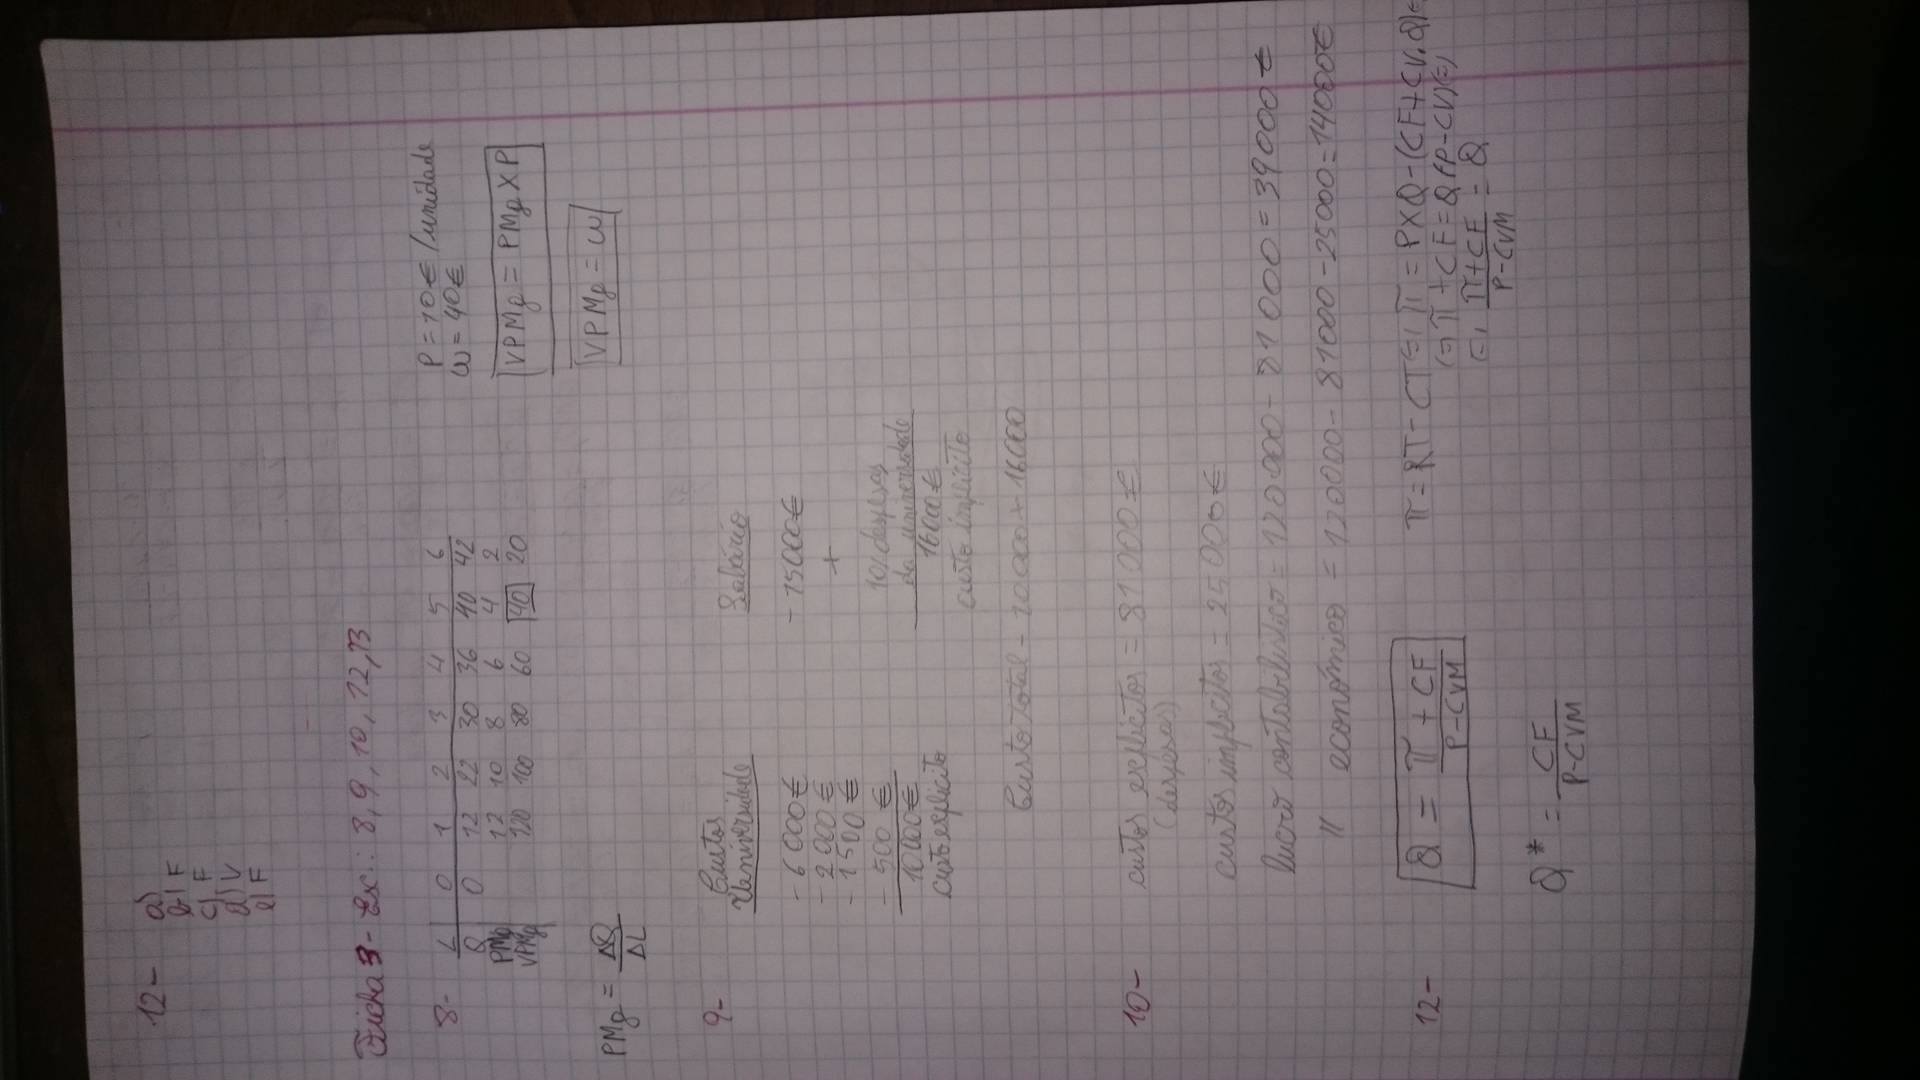 12- a)
b) F
c) F
d) V
e) F
Ficha 3 - Ex.: 8, 9, 10, 12, 13
8-
L 0 1 2 3 4 5 6
Q 0 12 22 30 36 40 42
PMg 12 10 8 6 4 2
VPMg 120 100 80 60 40 20
P = 10€/unidade
w = 40€
VPMg = PMg X P
VPMg = w
PMg = ΔQ/ΔL
9-
Custos
Universidade
- 6000€
- 2000€
- 1500€
- 500€
10000€
custo explícito
Salário
- 15000€
+
10% despesas
da universidade
16000€
custo implícito
Custo total = 10000 + 16000
10- custos explícitos = 81000€
(despesas)
custos implícitos = 25000€
lucro contabilístico = 120 000 - 81 000 = 39000€
" económico = 120000 - 81000 - 25000 = 14000€
12- Q = π + CF / P - CVM
π = RT - CT (=) π = P X Q - (CF + CV.Q) (=)
(=) π + CF = Q (P - CV) (=)
(=) π + CF / P - CVM = Q
Q* = CF / P - CVM